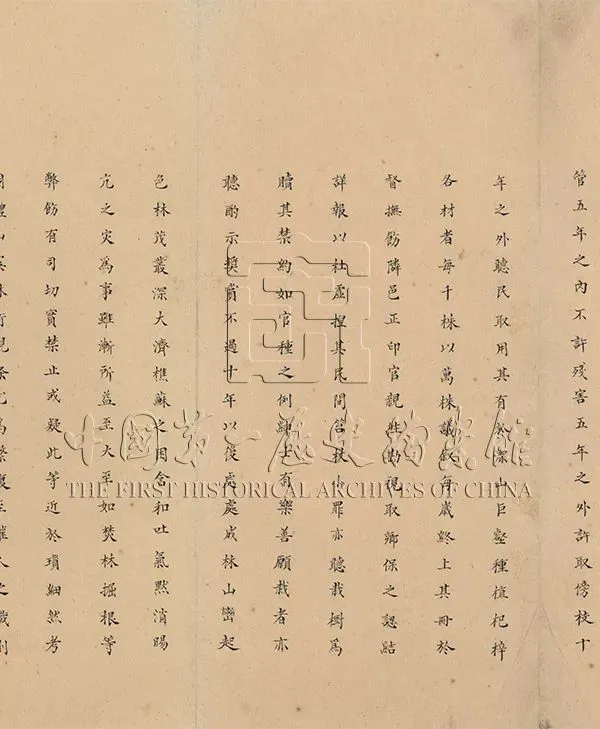 管五年之內不許殘害五年之外許取傍枝十
年之外聽民取用其有於深山巨壑種植杞梓
各材者每千株以萬株議敘每歲終上其冊於
督撫飭隣邑正印官親徃勘視取鄉保之認結
詳報以杜虛捏其民間笞杖小罪亦聽栽樹爲
贖其禁約如官種之例紳士有樂善願栽者亦
聽酌示獎賞不過十年以後處處成林山巒起
色林茂叢深大濟樵蘇之用含和吐氣默消暘
亢之灾爲事雖漸所益至大至如焚林掘根等
弊飭有司切實禁止或疑此等近於瑣細然考
中國第一歷史檔案館
THE FIRST HISTORICAL ARCHIVES OF CHINA